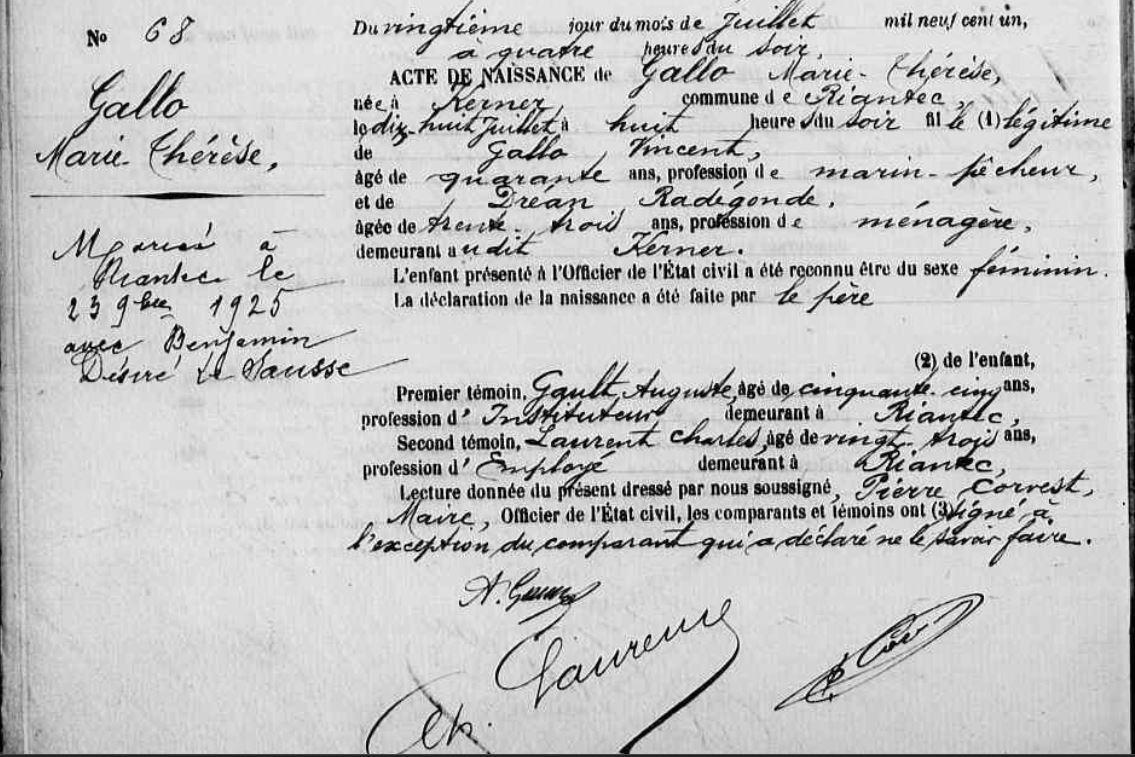 No 68
Gallo
Marie-Thérèse,
Mariée à
Riantec le
23 9bre 1925
avec Benjamin
Désiré Le Sausse
Du vingtième jour du mois de Juillet mil neuf cent un,
à quatre heures du soir,
ACTE DE NAISSANCE de Gallo Marie-Thérèse,
née à Kerner, commune de Riantec,
le dix-huit Juillet à huit heures du soir fille (1) légitime
de Gallo Vincent,
âgé de quarante ans, profession de marin-pêcheur,
et de Dréan Radégonde,
âgée de trente-trois ans, profession de ménagère,
demeurant audit Kerner.
L'enfant présenté à l'Officier de l'État civil a été reconnu être du sexe féminin.
La déclaration de la naissance a été faite par le père
(2) de l'enfant,
Premier témoin, Gault Auguste, âgé de cinquante-cinq ans,
profession d'Instituteur demeurant à Riantec,
Second témoin, Laurent Charles, âgé de vingt-trois ans,
profession d'Employé demeurant à Riantec,
Lecture donnée du présent dressé par nous soussigné, Pierre Corvest,
Maire, Officier de l'État civil, les comparants et témoins ont (3) signé à
l'exception du comparant qui a déclaré ne le savoir faire.
Ch. Laurent